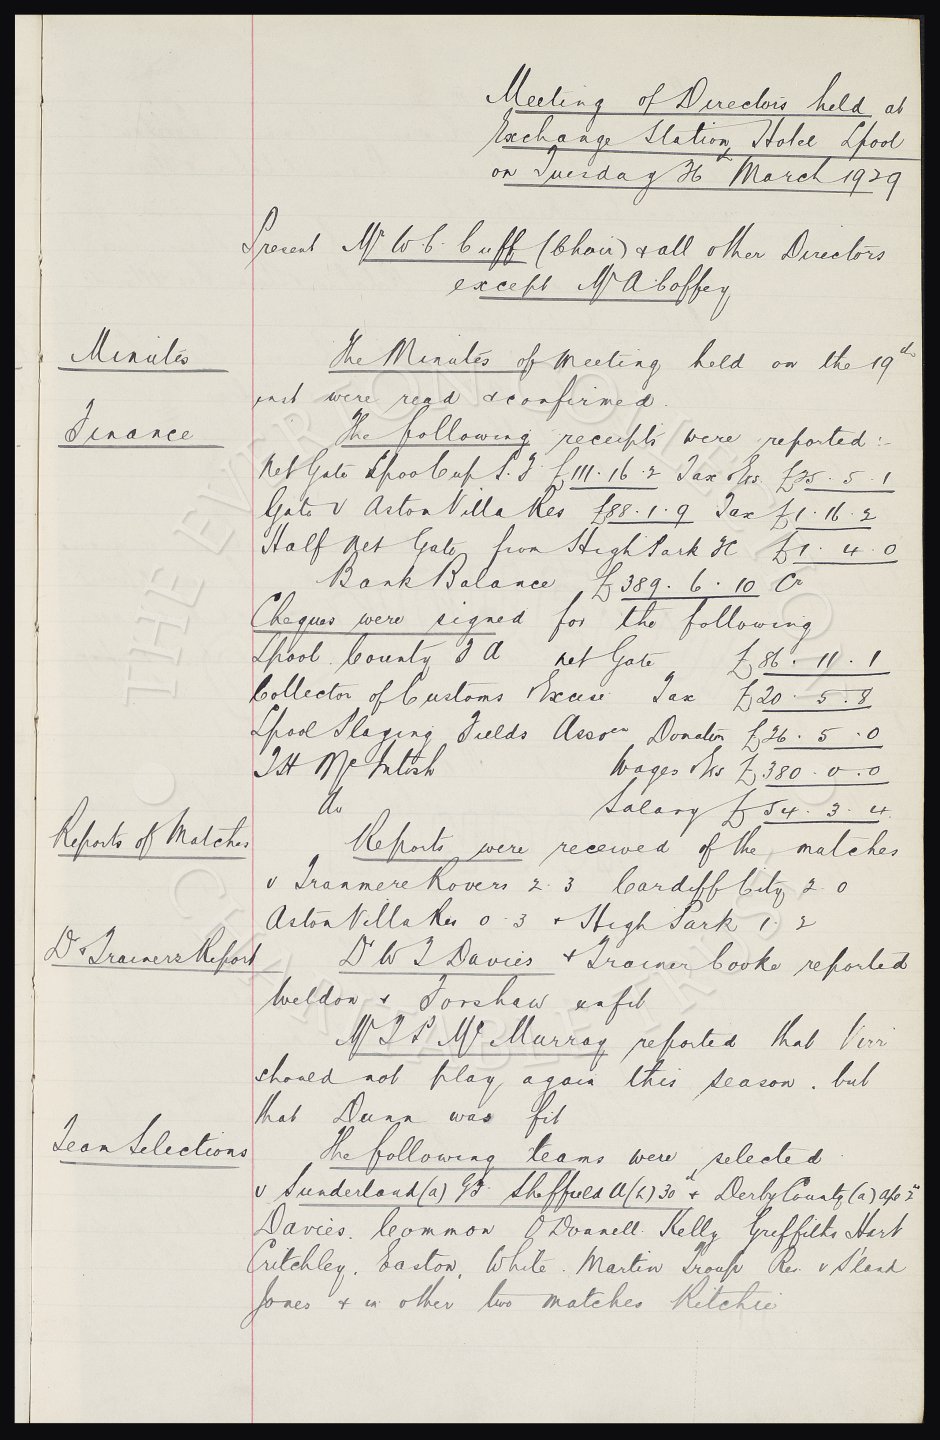 Meeting of Directors held at
Exchange Station Hotel Lpool
on Tuesday 26th March 1929
Present Mr W. C. Cuff (Chair) & all other Directors
except Mr A Coffey
Minutes
The Minutes of Meeting held on the 19th
inst were read & confirmed.
Finance
The following receipts were reported:-
Net Gate Lpool Cup S.F. £111.16.2 Tax &c £25.5.1
Gate v Aston Villa Res £88.1.9 Tax £1.16.2
Half Net Gate from High Park FC £1.4.0
Bank Balance £389.6.10 Cr
Cheques were signed for the following
Lpool County F A net Gate £86.11.1
Collector of Customs & Excise Tax £20.5.8
Lpool Playing Fields Assocn Donation £26.5.0
T H McIntosh Wages &c £380.0.0
Do Salary £54.3.4
Reports of Matches
Reports were received of the matches
v Tranmere Rovers 2.3 Cardiff City 2.0
Aston Villa Res 0.3 & High Park 1.2
Dr & Trainers Report
Dr W T Davies & Trainer Cooke reported
Weldon & Forshaw unfit
Mr T P McMurray reported that Virr
should not play again this season. but
that Dunn was fit
Team Selections
The following teams were selected
v Sunderland (a) Sheffield U (h) 30th & Derby County (a) Apl 2nd
Davies. Common O'Donnell. Kelly Griffiths Hart
Critchley. Easton. White. Martin Troup Res. v S'land
Jones & in other two matches Ritchie